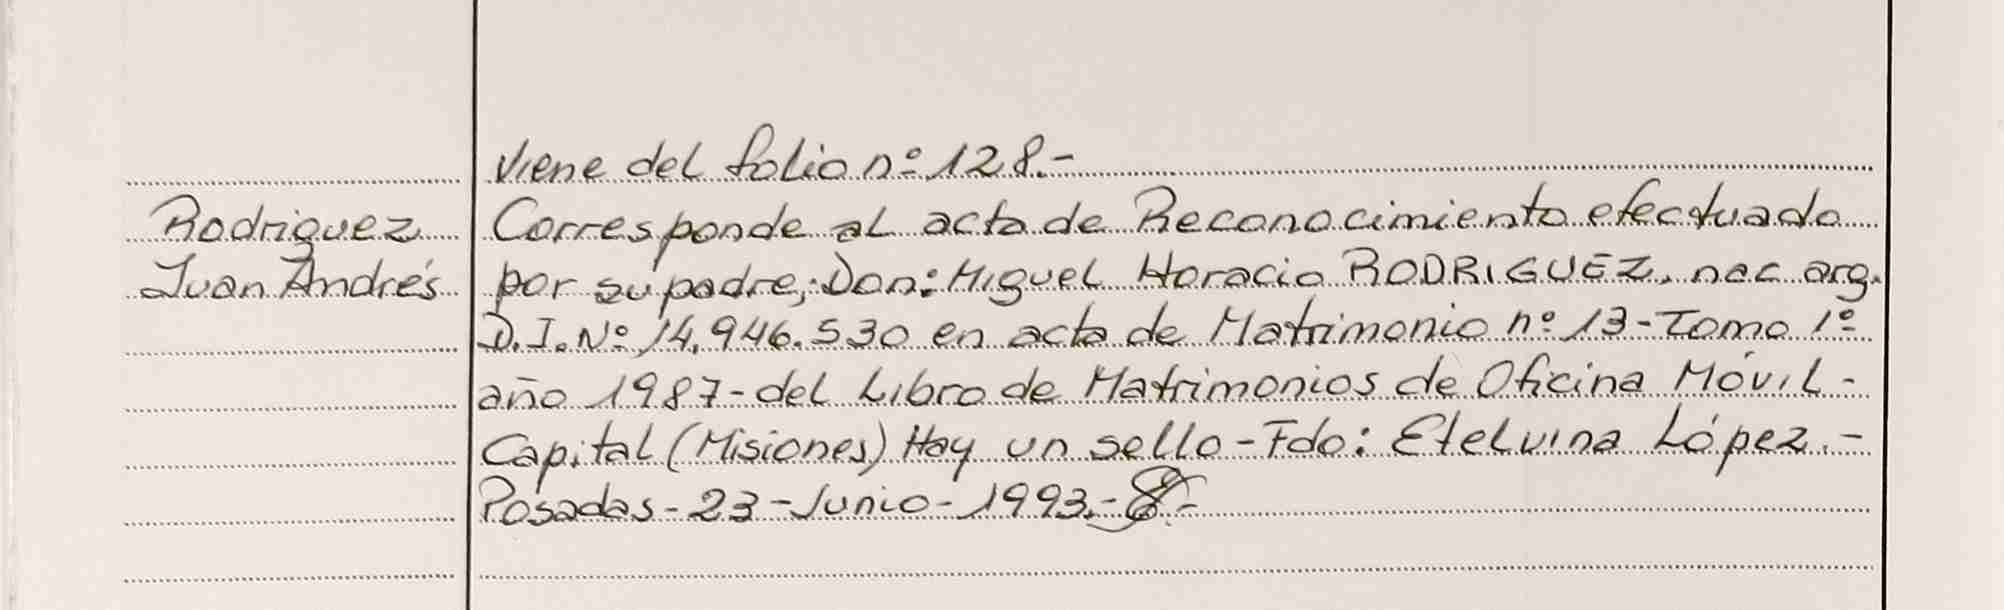 Viene del folio nº 128.-
Rodriguez
Juan Andrés
Corresponde al acta de Reconocimiento efectuado
por su padre, Don: Miguel Horacio RODRIGUEZ, nac arg.
D.I. Nº 14.946.530 en acta de Matrimonio nº 13-Tomo 1º
año 1987- del Libro de Matrimonios de Oficina Móvil-
Capital (Misiones) Hay un sello-Fdo: Etelvina López.-
Posadas-23-Junio-1993.-